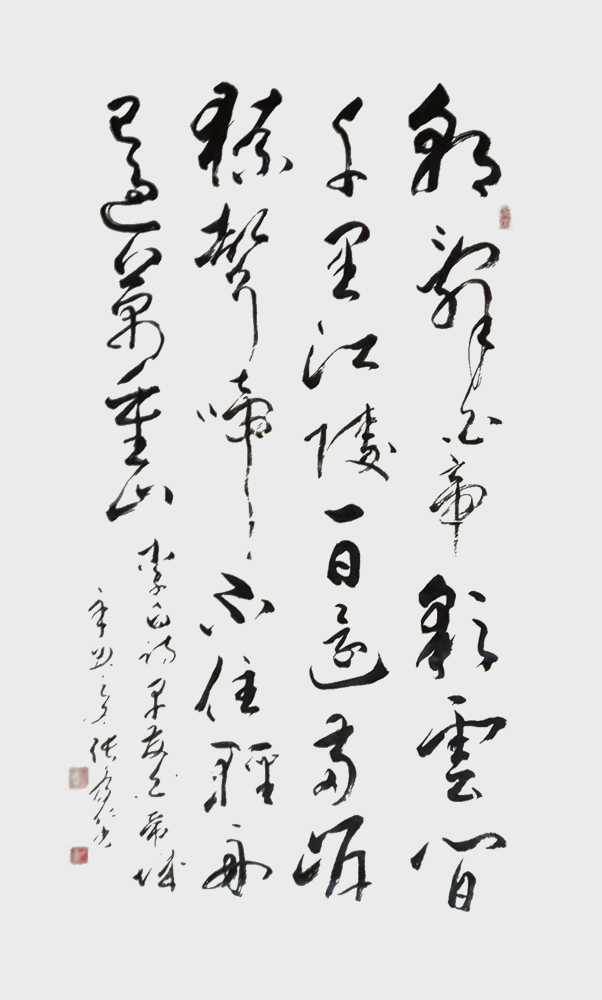 朝辭白帝彩雲間
千里江陵一日還兩岸
猿聲啼不住輕舟
已過萬重山
李白詩早發白帝城
辛丑